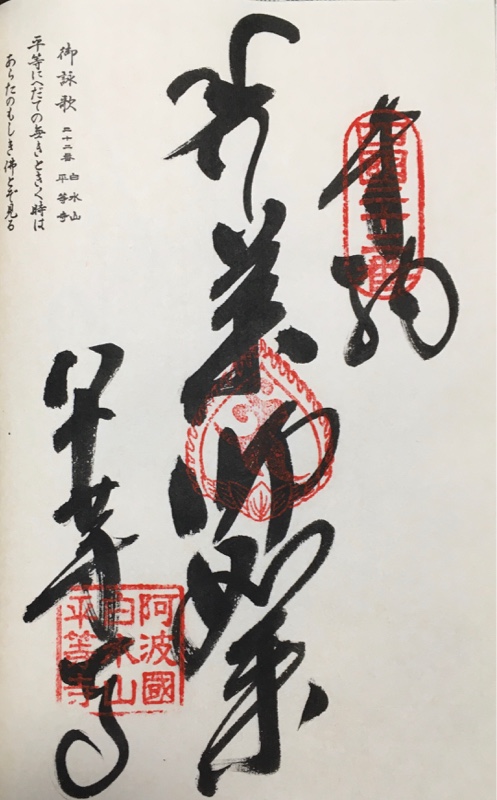 奉納
四國二十二番
薬師如来
平等寺
阿波國
白水山
平等寺
御詠歌 二十二番 白水山 平等寺
平等にへだての無きときく時は
あらたのもしき佛とぞ見る